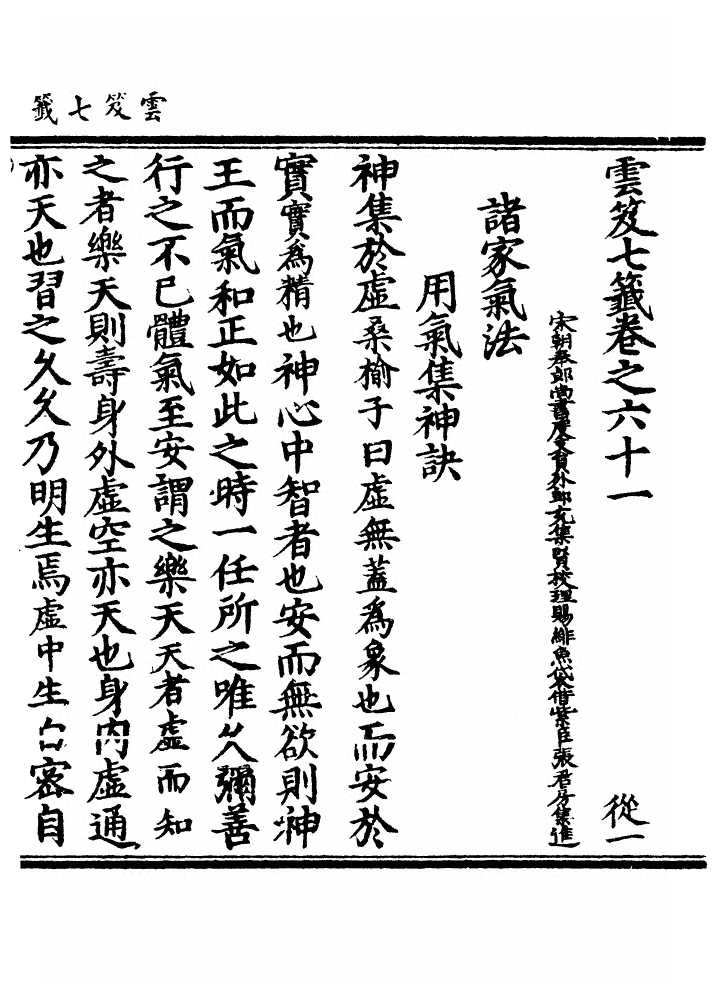 雲笈七籤
雲笈七籤卷之六十一
從一
宋朝奉郎尚書度支員外郎充集賢校理賜緋魚袋借紫臣張君房集進
諸家氣法
用氣集神訣
神集於虛桑榆子曰虛無蓋為象也而安於
實實為精也神心中智者也安而無欲則神
王而氣和正如此之時一任所之唯久彌善
行之不已體氣至安謂之樂天天者虛而知
之者樂天則壽身外虛空亦天也身內虛通
亦天也習之久久乃明生焉虛中生白密自